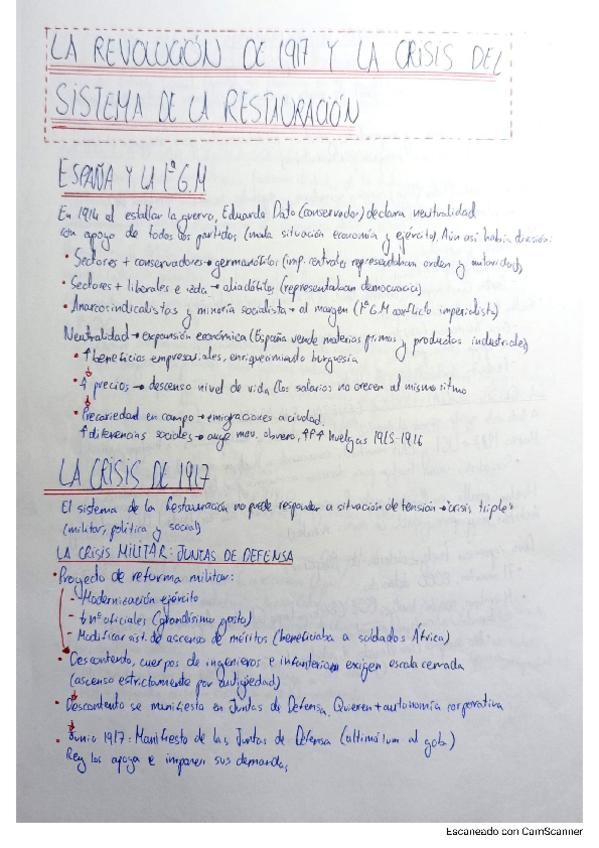 LA REVOLUCIÓN DE 1917 Y LA CRISIS DEL
SISTEMA DE LA RESTAURACIÓN
ESPAÑA Y LA 1ª G.M
En 1914 al estallar la guerra, Eduardo Dato (conservador) declara neutralidad
con apoyo de todos los partidos (mala situación economía y ejército). Aún así había división:
• Sectores + conservadores → germanófilos (imp. centrales representaban orden y autoridad)
• Sectores + liberales e izda → aliadófilos (representaban democracia)
• Anarcosindicalistas y minoría socialista → al margen (1ª GM conflicto imperialista)
Neutralidad → expansión económica (España vende materias primas y productos industriales)
• ↑ beneficios empresariales, enriquecimiento burguesía
↑ precios → descenso nivel de vida (los salarios no crecen al mismo ritmo
• Precariedad en campo → emigraciones a ciudad.
↑ diferencias sociales → auge mov. obrero, ↑↑↑ huelgas 1915-1916
LA CRISIS DE 1917
El sistema de la Restauración no puede responder a situación de tensión → "crisis triple"
(militar, política y social)
LA CRISIS MILITAR: JUNTAS DE DEFENSA
• Proyecto de reforma militar:
- Modernización ejército
- ↓ nº oficiales (grandísimo gasto)
- Modificar sist. de ascenso de méritos (beneficiaba a soldados África)
• Descontento, cuerpos de ingenieros e infantería exigen escala cerrada
(ascenso estrictamente por antigüedad)
• Descontento se manifiesta en Juntas de Defensa. Quieren + autonomía corporativa
• Junio 1917: Manifiesto de las Juntas de Defensa (ultimátum al gob.)
Rey las apoya e imponen sus demandas
Escaneado con CamScanner